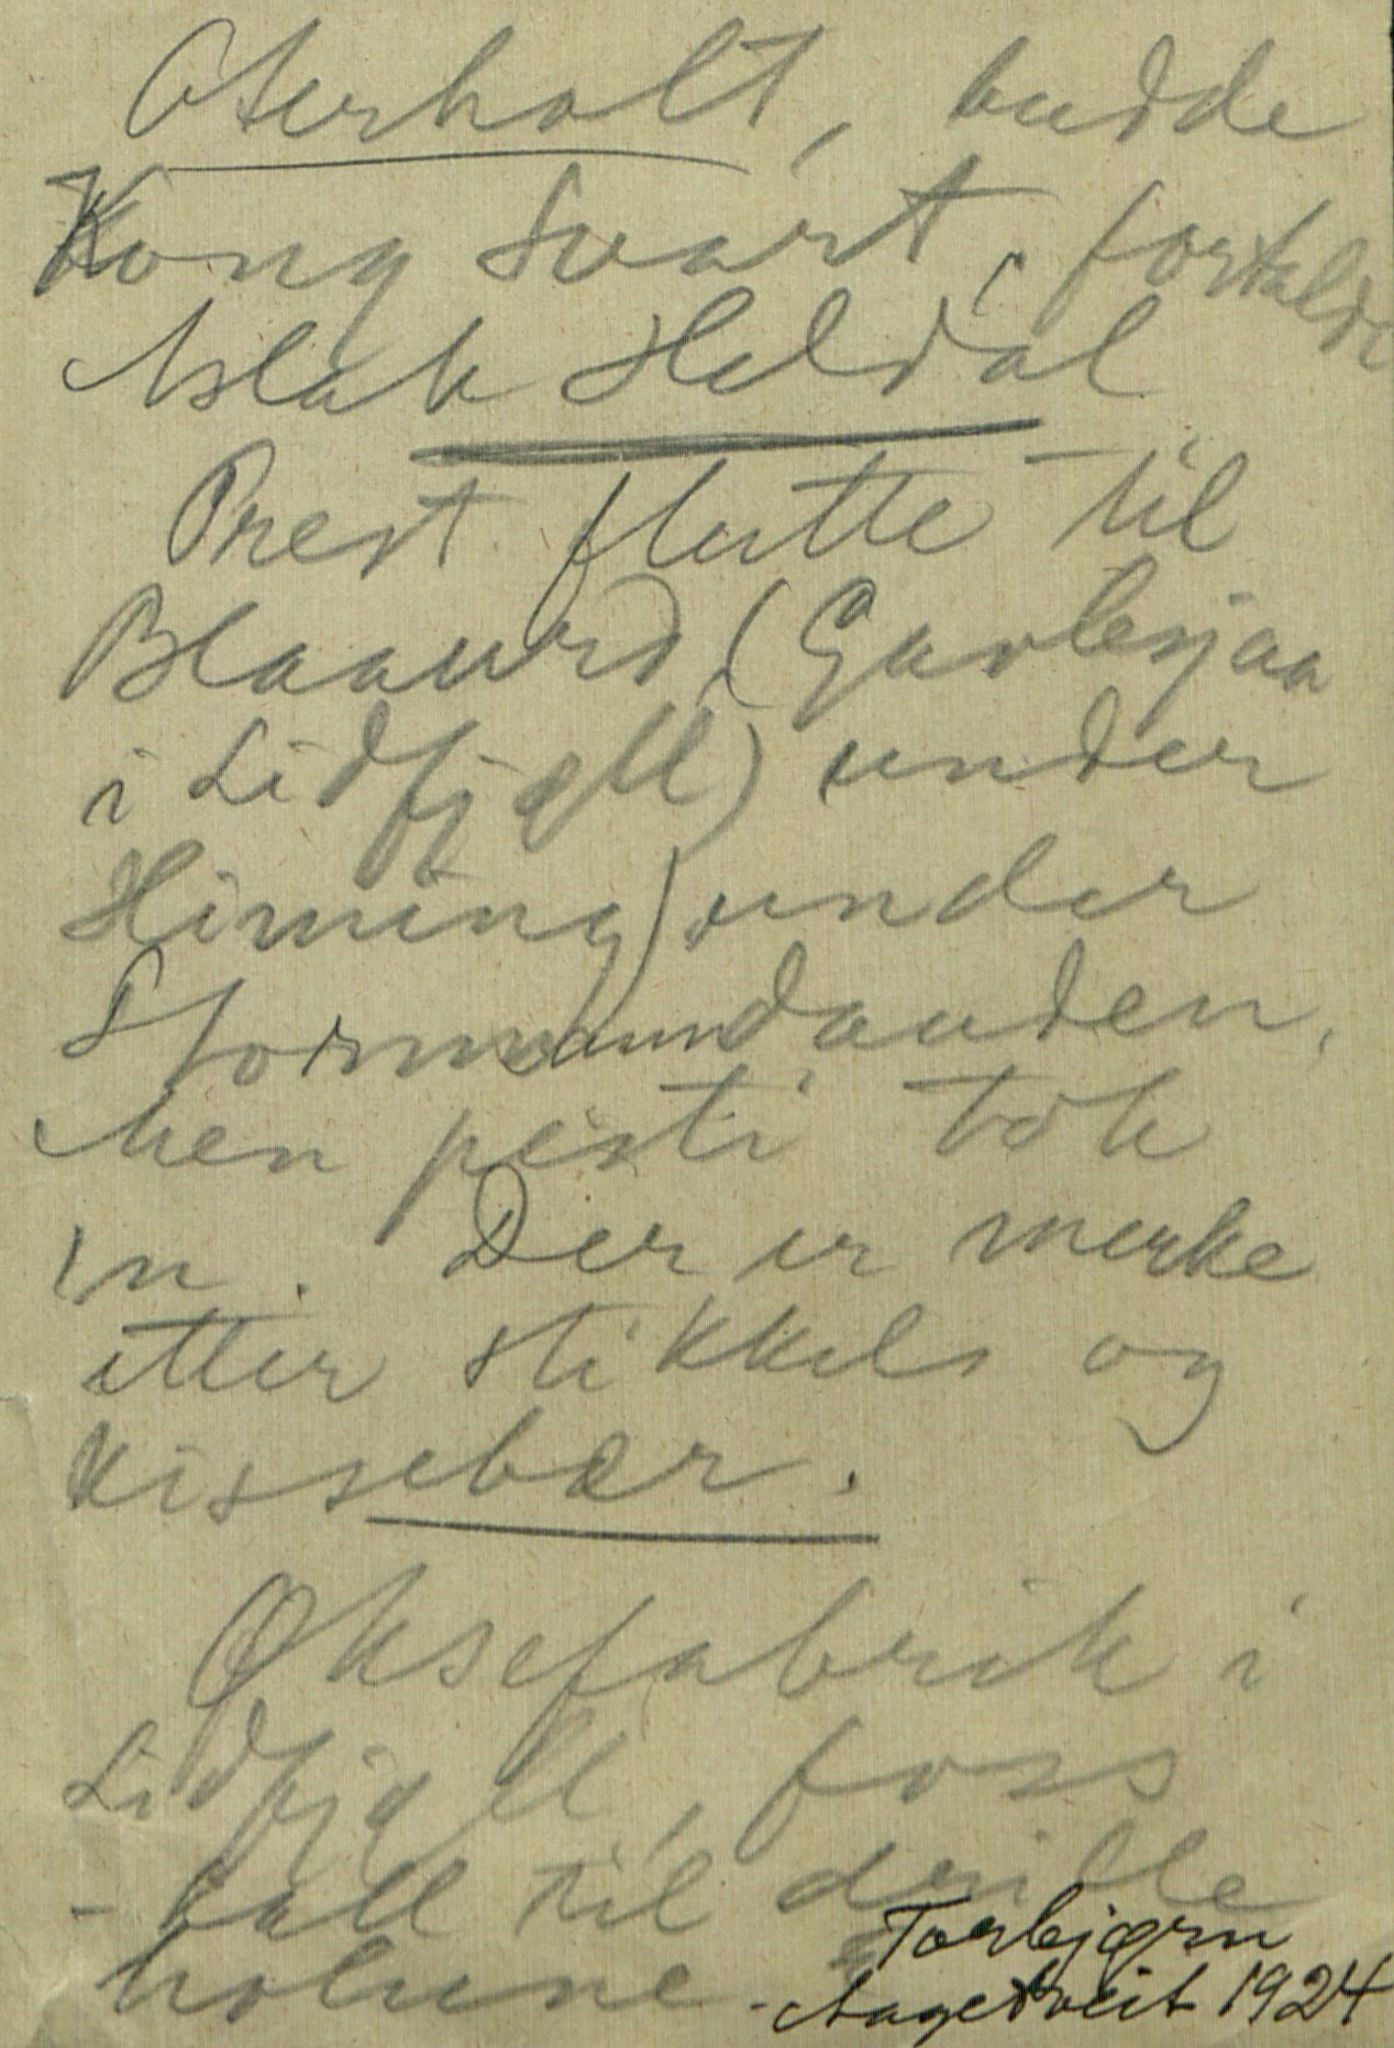 Oterholt, budde
Kong Svart, fortalde
Aslak Heldal
Prest flutte til
Blaaurd, (Gavlesjaa
i Lidfjell) under
Himing) under
Stormanndauden,
Men pesti tok
'n. Der er merke
etter stikkels og
kissebær.
Øksefabrik i
Lidfjell, foss
- fall til
holune
Torbjørn
Aagetveit 1924